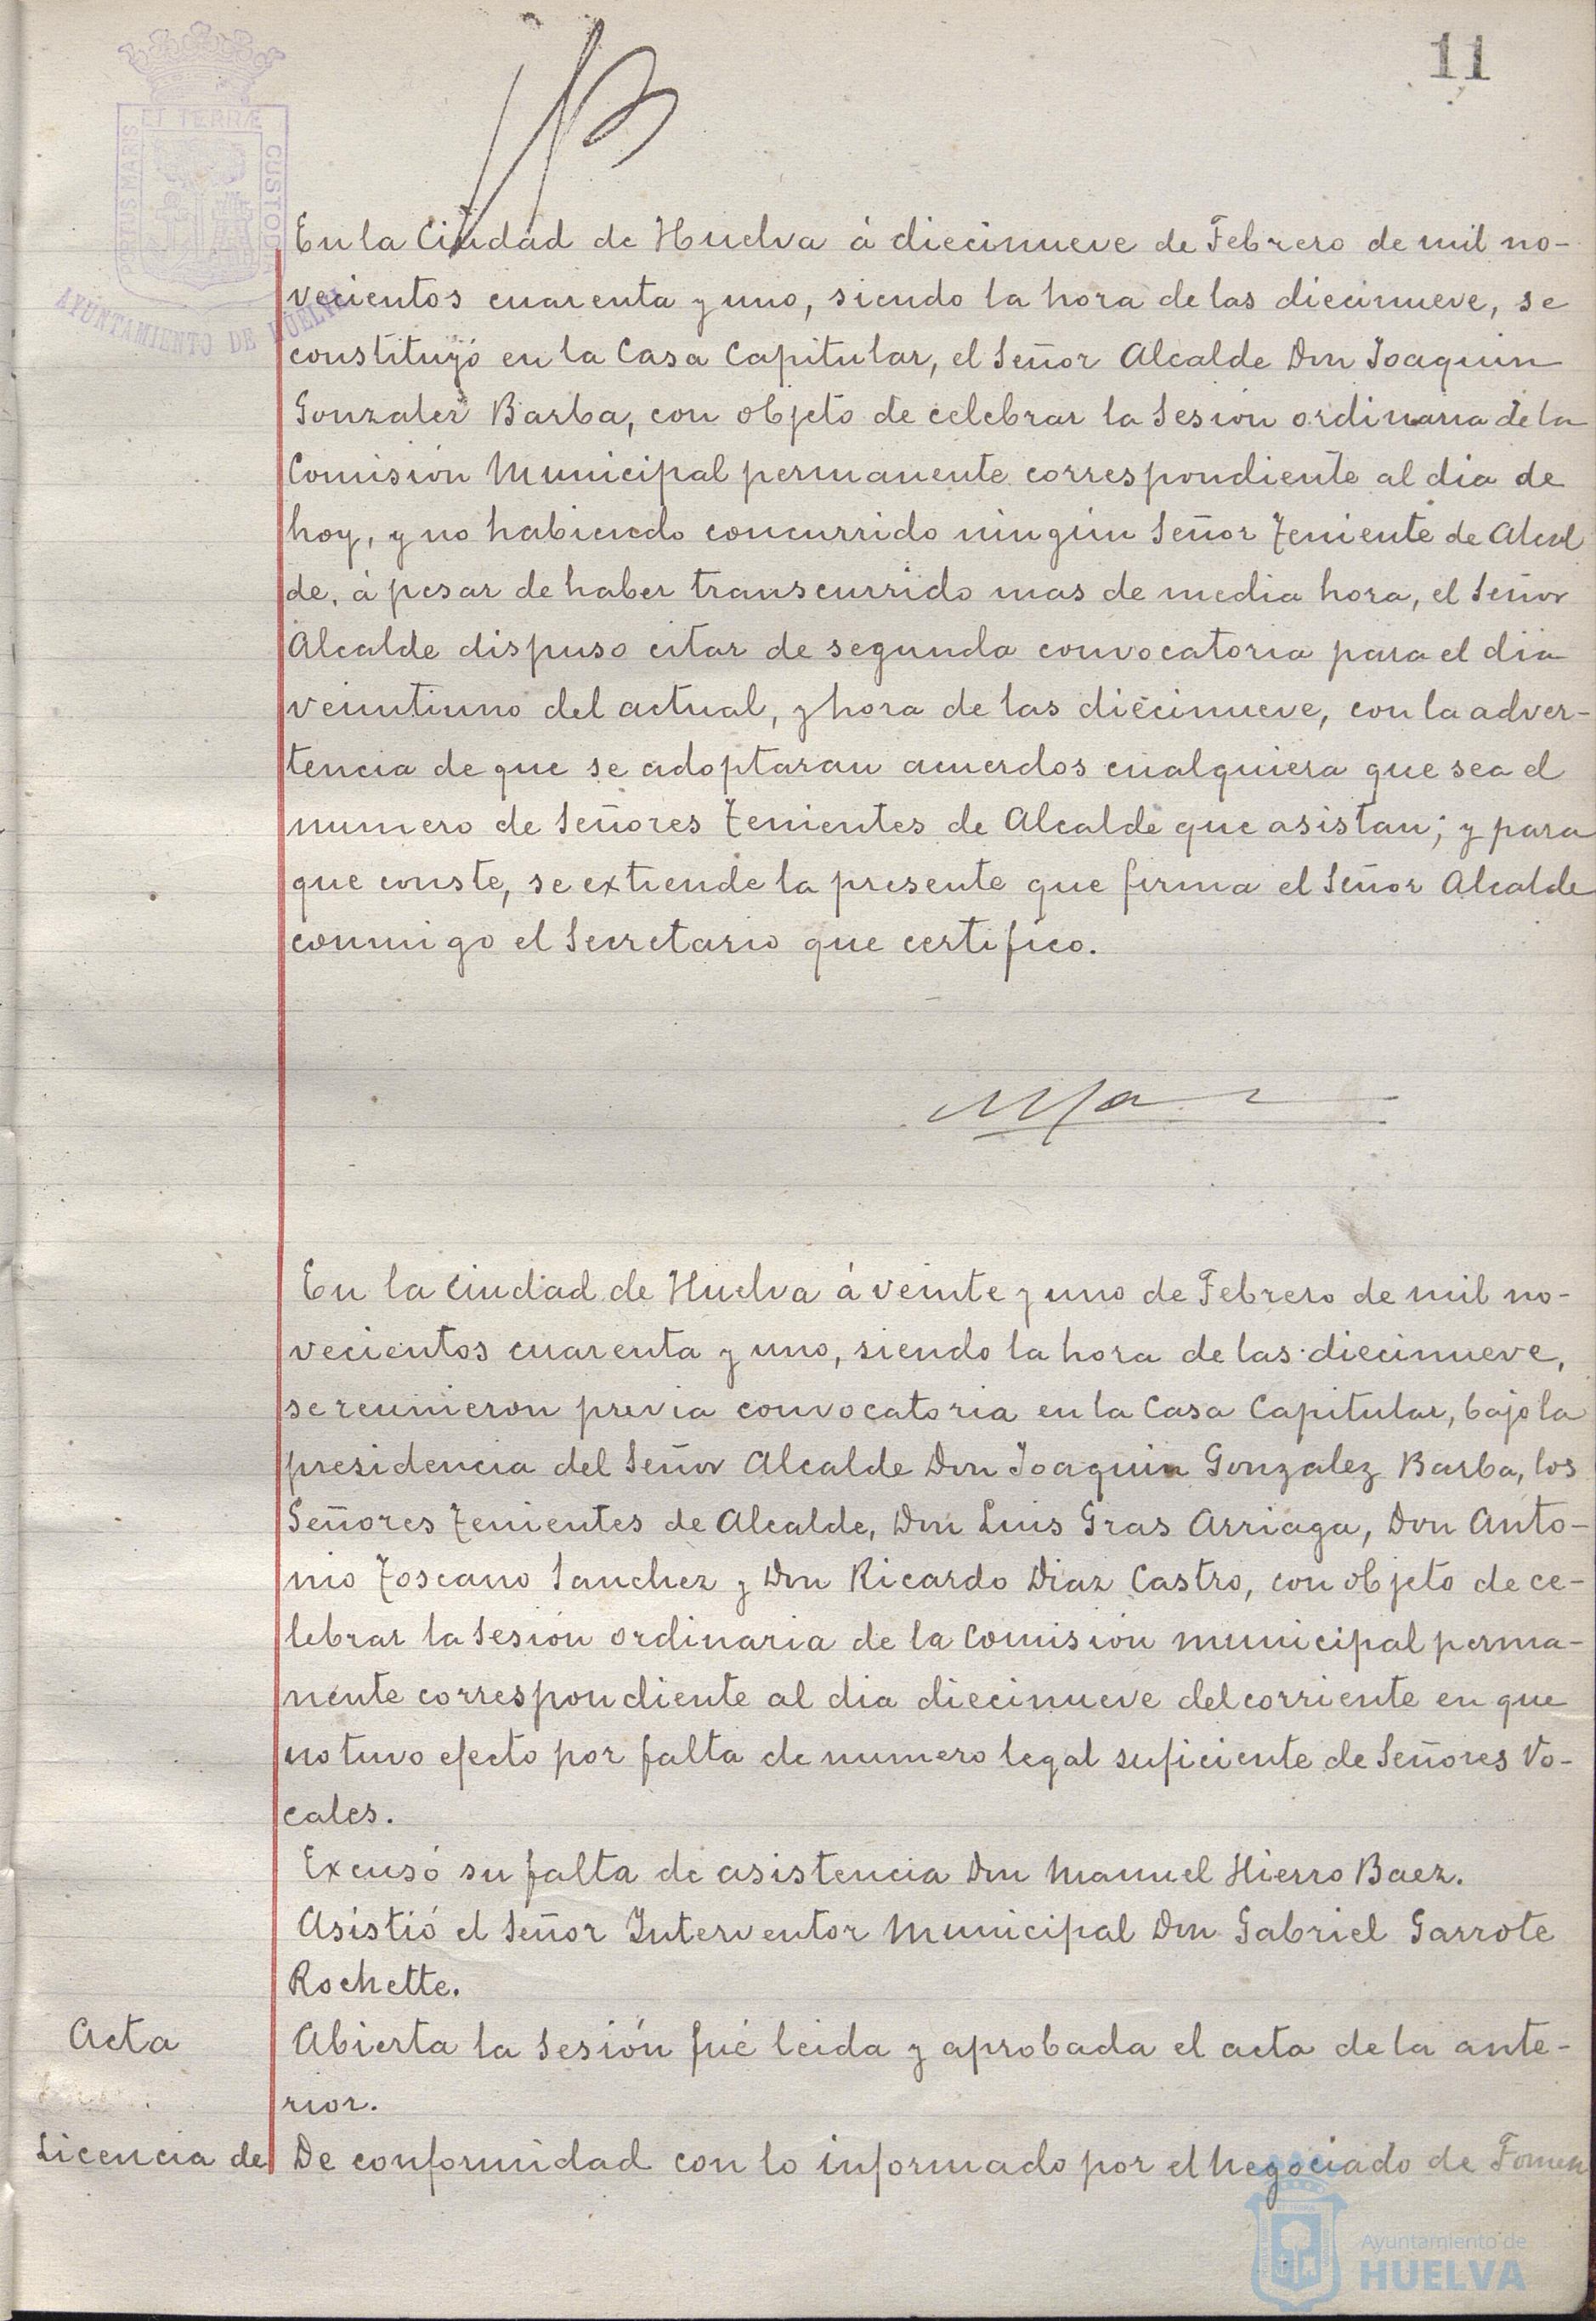 11
ET TERRÆ
PORTUS MARIS
CUSTODI
AYUNTAMIENTO DE HUELVA
En la Ciudad de Huelva á diecinueve de Febrero de mil no-
vecientos cuarenta y uno, siendo la hora de las diecinueve, se
constituyó en la Casa Capitular, el Señor Alcalde Don Joaquin
Gonzalez Barba, con objeto de celebrar la Sesión ordinaria de la
Comisión Municipal permanente correspondiente al dia de
hoy, y no habiendo concurrido ningún Señor Teniente de Alcal
de, á pesar de haber transcurrido mas de media hora, el Señor
Alcalde dispuso citar de segunda convocatoria para el dia
veintiuno del actual, y hora de las diecinueve, con la adver-
tencia de que se adoptaran acuerdos cualquiera que sea el
numero de Señores Tenientes de Alcalde que asistan; y para
que conste, se extiende la presente que firma el Señor Alcalde
conmigo el Secretario que certifico.
En la Ciudad de Huelva á veinte y uno de Febrero de mil no-
vecientos cuarenta y uno, siendo la hora de las diecinueve,
se reunieron previa convocatoria en la Casa Capitular, bajo la
presidencia del Señor Alcalde Don Joaquin Gonzalez Barba, los
Señores Tenientes de Alcalde, Don Luis Gras Arriaga, Don Anto-
nio Toscano Sanchez y Don Ricardo Diaz Castro, con objeto de ce-
lebrar la Sesión ordinaria de la Comisión municipal perma-
nente correspondiente al dia diecinueve del corriente en que
no tuvo efecto por falta de numero legal suficiente de Señores Vo-
cales.
Excusó su falta de asistencia Don Manuel Hierro Baez.
Asistió el Señor Interventor Municipal Don Gabriel Garrote
Rochette.
Acta Abierta la Sesión fué leida y aprobada el acta de la ante-
rior.
Licencia de De conformidad con lo informado por el Negociado de Fomen
Ayuntamiento de
HUELVA